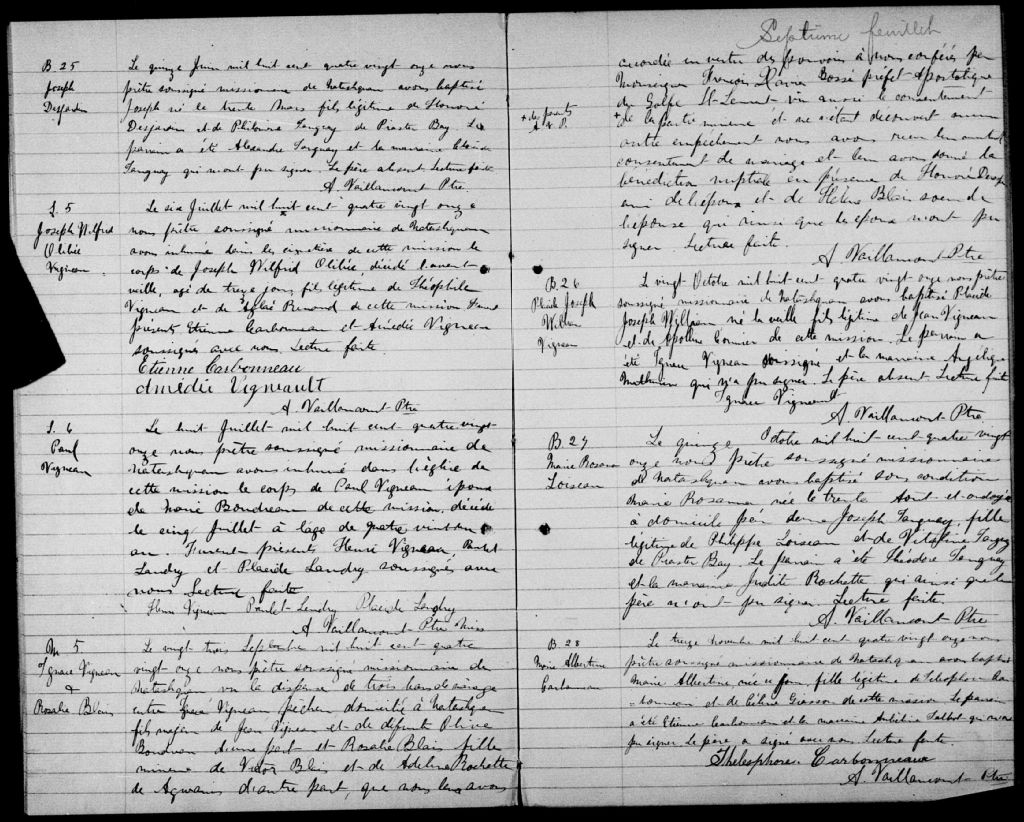 B. 25
Joseph
Desjardins
Le quinze Juin mil huit cent quatre vingt onze nous
prêtre soussigné missionnaire de Natashquan avons baptisé
Joseph né le trente Mars fils légitime de Honoré
Desjardins et de Tanguay de Piastre Bay. Le
parrain a été Alexandre Tanguay et la marraine
Tanguay qui n'ont pu signer. Le père absent. Lecture faite
A Vaillancourt Ptre.
S. 5
Joseph Wilfrid
Olibée
Vigneau.
Le six Juillet mil huit cent quatre vingt onze
nous prêtre soussigné missionnaire de Natashquan
avons inhumé dans le cimetière de cette mission le
corps de Joseph Wilfrid Olibée, décédé l'avant
veille, agé de treize jours, fils légitime de Théophile
Vigneau et de Aglaé Renond de cette mission. Furent
présents Etienne Carbonneau et Amédée Vigneau
soussignés avec nous. Lecture faite.
Etienne Carbonneau
Amédie Vigneault
A Vaillancourt Ptre
S. 6
Paul
Vigneau
Le huit Juillet mil huit cent quatre vingt
onze nous prêtre soussigné missionnaire de
Natashquan avons inhumé dans l'église de
cette mission le corps de Paul Vigneau époux
de Marie Boudreau de cette mission, décédé
le cinq Juillet à l'age de quatre vingt un
an. Furent présents Henri Vigneau, Paulet
Landry et Placide Landry soussignés avec
nous. Lecture faite
Henri Vigneau Paulet Landry Placide Landry
A Vaillancourt Ptre Miss
M 5
Ignace Vigneau
&
Rosalie Blais
Le vingt trois Septembre mil huit cent quatre
vingt onze nous prêtre soussigné missionnaire de
Natashquan vu la dispense de trois bans de mariage
entre Ignace Vigneau pêcheur domicilié à Natashquan
fils majeur de Jean Vigneau et de défunte Olive
Boudreau d'une part et Rosalie Blais fille
mineure de Victor Blais et de Adeline Rochette
de Agwanus d'autre part, que nous leur avons
Septième feuillet
accordée en vertu des pouvoirs à nous conférés par
Monseigneur François Xavier Bossé préfet Apostolique
du Golfe St-Laurent vu aussi le consentement
+ des parents
A. V. P.
+ de la partie mineure et ne s'étant découvert aucun
autre empêchement nous avons reçu leur mutuel
consentement de mariage et leur avons donné la
bénédiction nuptiale en présence de Honoré
ami de l'époux et de Hélène Blais soeur de
l'épouse qui ainsi que l'époux n'ont pu
signer. Lecture faite.
A Vaillancourt Ptre
B. 26
Placide Joseph
William
Vigneau
Le vingt Octobre mil huit cent quatre vingt onze nous prêtre
soussigné missionnaire de Natashquan avons baptisé Placide
Joseph William né la veille fils légitime de Jean Vigneau
et de Apolline Cormier de cette mission. Le parrain a
été Ignace Vigneau soussigné et la marraine Angélique
qui n'a pu signer. Le père absent. Lecture faite
Ignace Vigneault
A Vaillancourt Ptre
B. 27
Marie Rosanna
Loiseau
Le quinze Octobre mil huit cent quatre vingt
onze nous prêtre soussigné missionnaire
de Natashquan avons baptisé sous condition
Marie Rosanna née le trente Aout et ondoyée
à domicile par Joseph Tanguay, fille
légitime de Philippe Loiseau et de Vitaline Tanguay
de Piastre Bay. Le parrain a été Théodore Tanguay
et la marraine Judith Rochette qui ainsi que le
père n'ont pu signer. Lecture faite.
A. Vaillancourt Ptre
B. 28
Marie Albertine
Carbonneau
Le treize Novembre mil huit cent quatre vingt onze nous
prêtre soussigné missionnaire de Natashquan avons baptisé
Marie Albertine née ce jour fille légitime de Télesphore Car
bonneau et de Céline Giasson de cette mission. Le parrain
a été Etienne Carbonneau et la marraine Talbot qui n'a
pu signer. Le père a signé avec nous. Lecture faite.
Thelesphore Carbonneau
A Vaillancourt Ptre